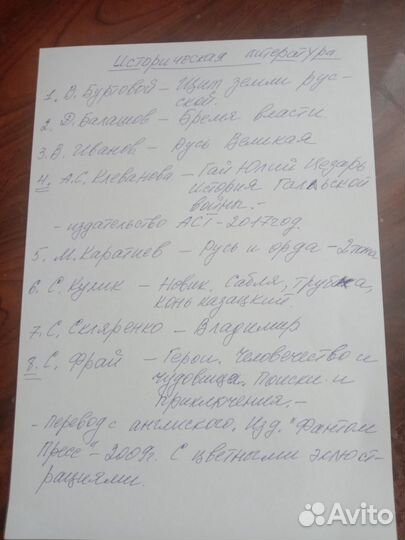 Историческая литература
1. В. Буртовой – Щит земли рус-
ской.
2. Д. Балашов – Бремя власти.
3. В. Иванов – Русь Великая
4. А.С. Клеванова – Гай Юлий Цезарь
История Галльской
войны. –
– издательство АСТ – 2017 год.
5. М. Каратеев – Русь и орда – 2 тома
6. С. Кулик – Новик. Сабля, трубка,
конь казацкий.
7. С. Скляренко – Владимир
8. С. Фрай – Герои. Человечество и
чудовища. Поиски и
приключения. –
– Перевод с английского. Изд. "Фантом
Пресс" – 2009г. С цветными иллюст-
рациями.
Avito